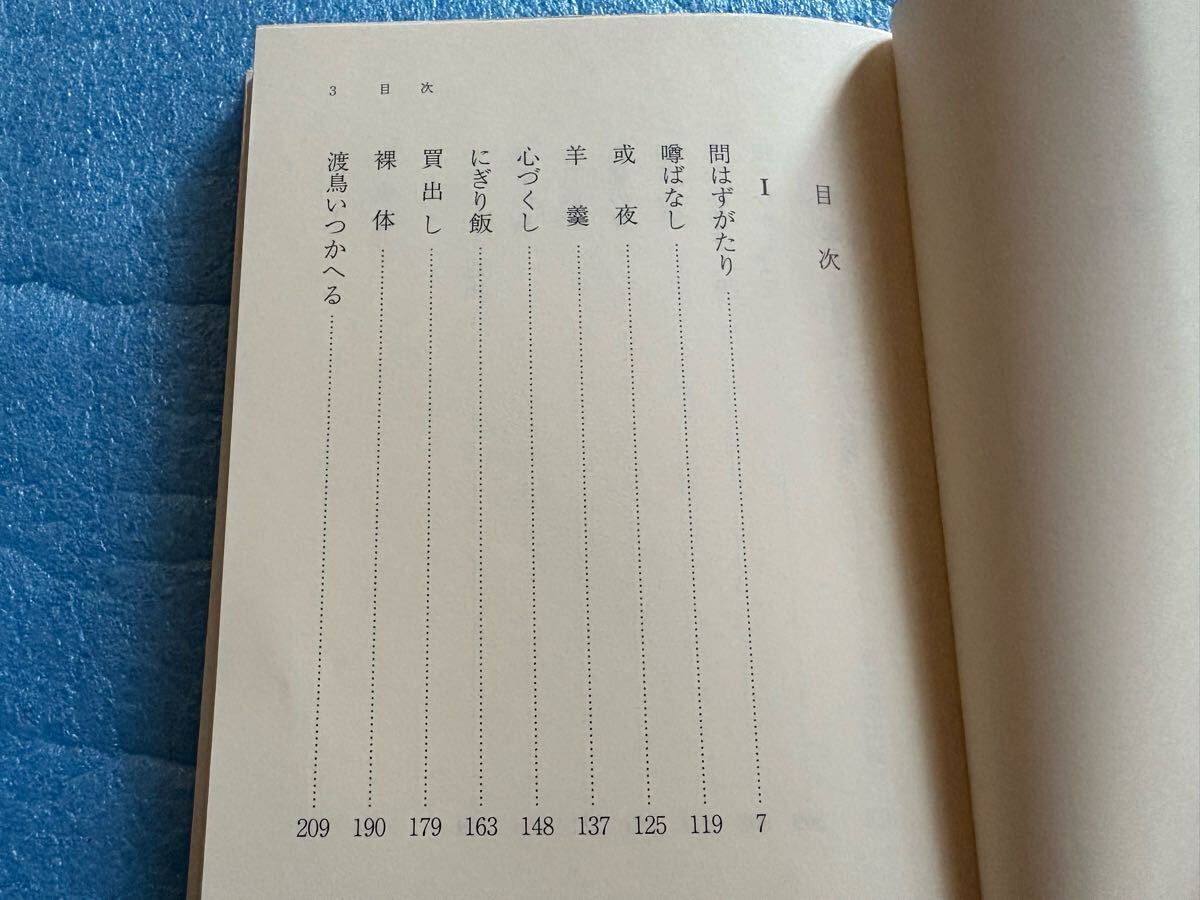 3 目次
目次
I
問はずがたり 7
噂ばなし 119
或夜 125
羊羹 137
心づくし 148
にぎり飯 163
買出し 179
裸体 190
渡鳥いつかへる 209